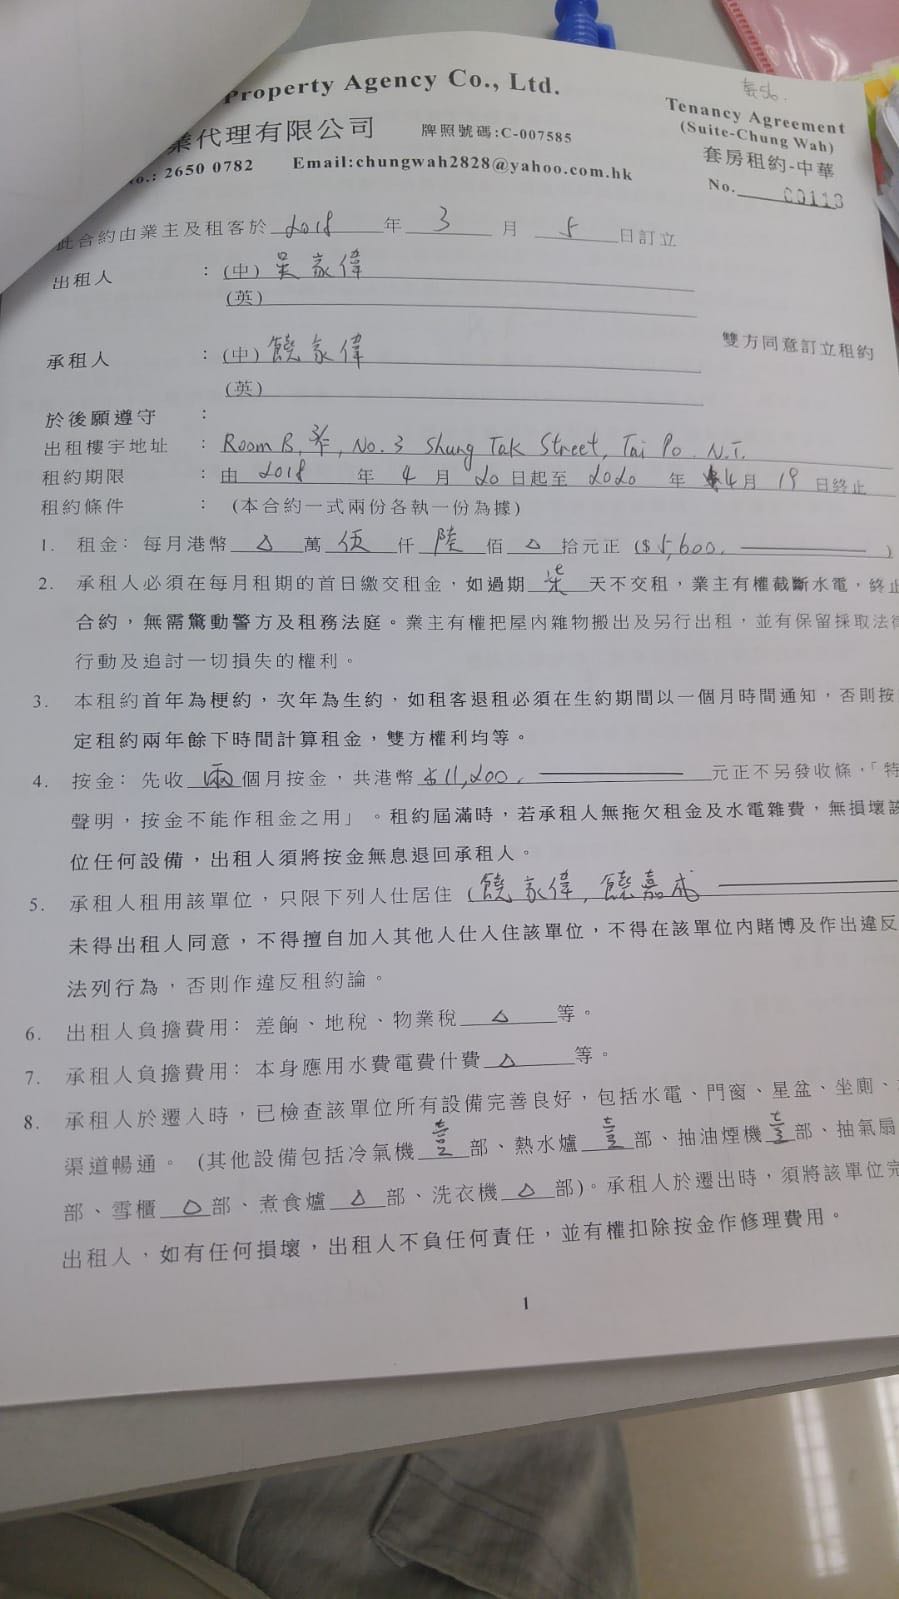 Property Agency Co., Ltd.
業代理有限公司 牌照號碼:C-007585
No.: 2650 0782 Email:chungwah2828@yahoo.com.hk
Tenancy Agreement
(Suite-Chung Wah)
套房租約-中華
No. 00113
此合約由業主及租客於 2018 年 3 月 5 日訂立
出租人 : (中) 吳家偉
(英)
承租人 : (中) 饒家偉
(英)
雙方同意訂立租約
於後願遵守 :
出租樓宇地址 : Room B, 3/F, No. 3 Shung Tak Street, Tai Po N.T.
租約期限 : 由 2018 年 4 月 20 日起至 2020 年 4月 19 日終止
租約條件 : (本合約一式兩份各執一份為據)
1. 租金: 每月港幣 △ 萬 伍 仟 陸 佰 △ 拾元正 ($ 5,600. )
2. 承租人必須在每月租期的首日繳交租金,如過期 柒 天不交租,業主有權截斷水電,終止
合約,無需驚動警方及租務法庭。業主有權把屋內雜物搬出及另行出租,並有保留採取法律
行動及追討一切損失的權利。
3. 本租約首年為梗約,次年為生約,如租客退租必須在生約期間以一個月時間通知,否則按
定租約兩年餘下時間計算租金,雙方權利均等。
4. 按金: 先收 兩 個月按金,共港幣 $11,200. 元正不另發收條,「特
聲明,按金不能作租金之用」。租約屆滿時,若承租人無拖欠租金及水電雜費,無損壞該
位任何設備,出租人須將按金無息退回承租人。
5. 承租人租用該單位,只限下列人仕居住 (饒家偉, 饒嘉成
未得出租人同意,不得擅自加入其他人仕入住該單位,不得在該單位內賭博及作出違反
法列行為,否則作違反租約論。
6. 出租人負擔費用: 差餉、地稅、物業稅 △ 等。
7. 承租人負擔費用: 本身應用水費電費什費 △ 等。
8. 承租人於遷入時,已檢查該單位所有設備完善良好,包括水電、門窗、星盆、坐廁、
渠道暢通。 (其他設備包括冷氣機 壹 部、熱水爐 壹 部、抽油煙機 壹 部、抽氣扇
部、雪櫃 △ 部、煮食爐 △ 部、洗衣機 △ 部)。承租人於遷出時,須將該單位完
出租人,如有任何損壞,出租人不負任何責任,並有權扣除按金作修理費用。
1